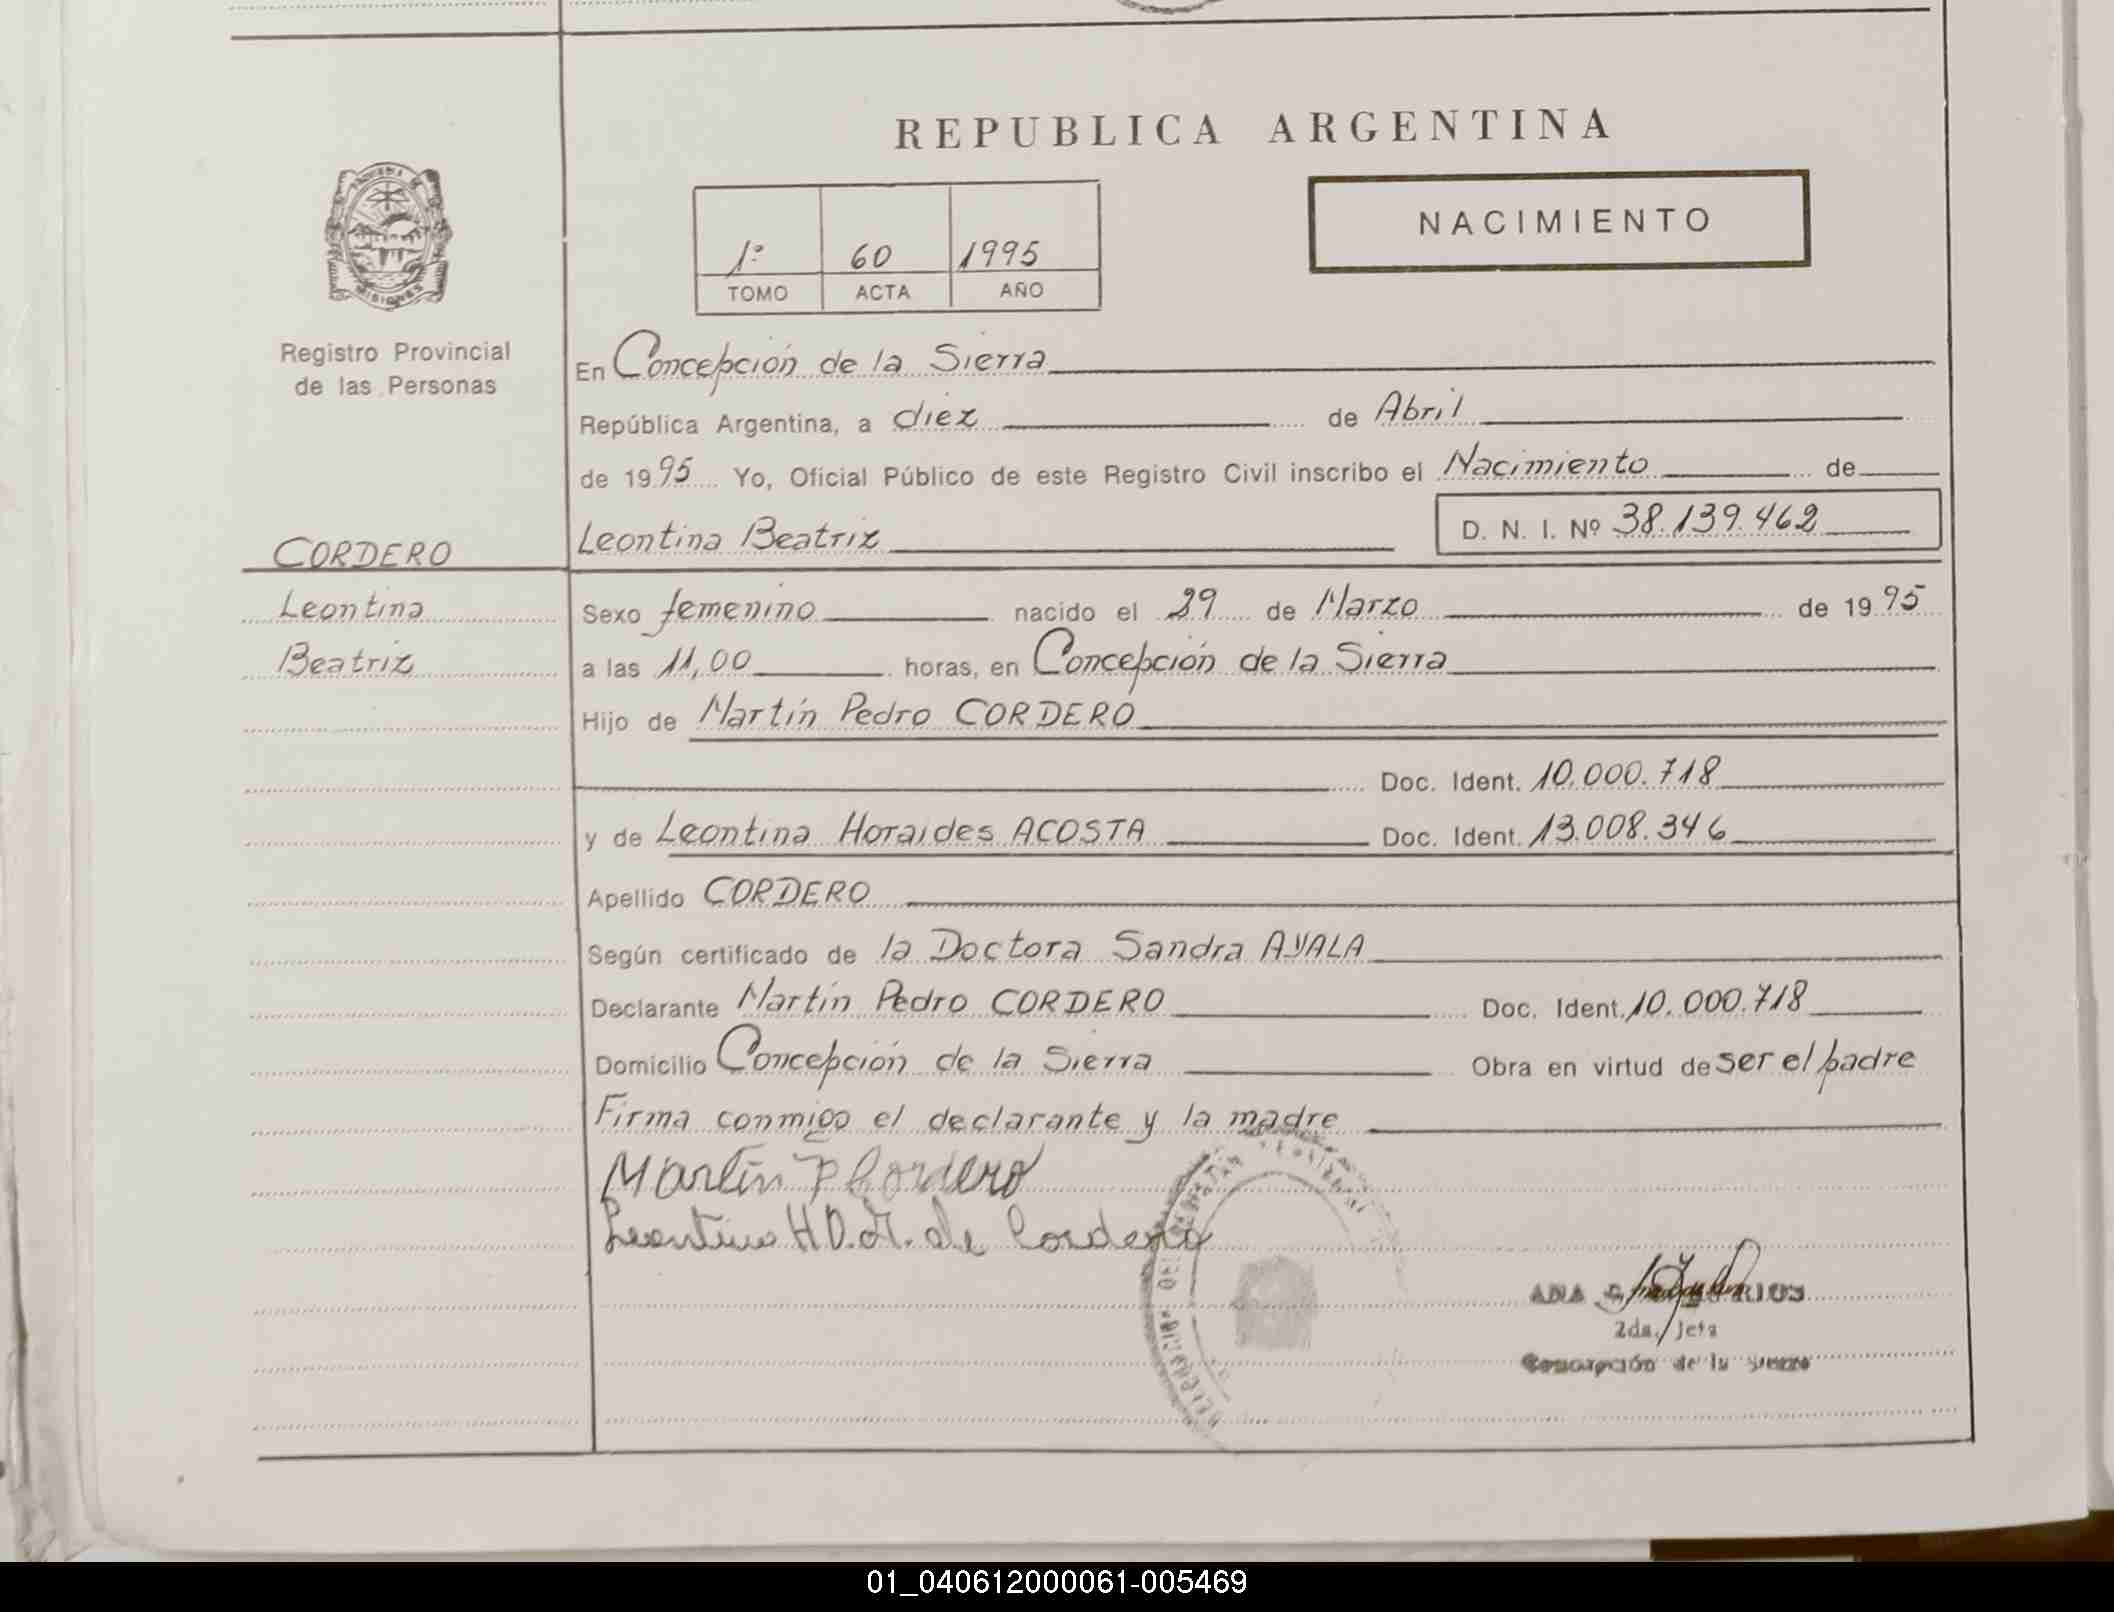 REPUBLICA ARGENTINA
NACIMIENTO
1º 60 1995
TOMO ACTA AÑO
MISIONES
Registro Provincial
de las Personas
En Concepción de la Sierra
República Argentina, a diez de Abril
de 1995 Yo, Oficial Público de este Registro Civil inscribo el Nacimiento de
CORDERO
Leontina Beatriz D. N. I. Nº 38.139.462
Leontina
Sexo femenino nacido el 29 de Marzo de 1995
Beatriz
a las 11,00 horas, en Concepción de la Sierra
Hijo de Martín Pedro CORDERO
Doc. Ident. 10.000.718
y de Leontina Horaides ACOSTA Doc. Ident. 13.008.346
Apellido CORDERO
Según certificado de la Doctora Sandra AYALA
Declarante Martín Pedro CORDERO Doc. Ident. 10.000.718
Domicilio Concepción de la Sierra Obra en virtud de ser el padre
Firma conmigo el declarante y la madre
Martín P Cordero
Leontina H de Cordero
ANA RIOS
2da. Jefa
Concepción de la Sierra
01_040612000061-005469